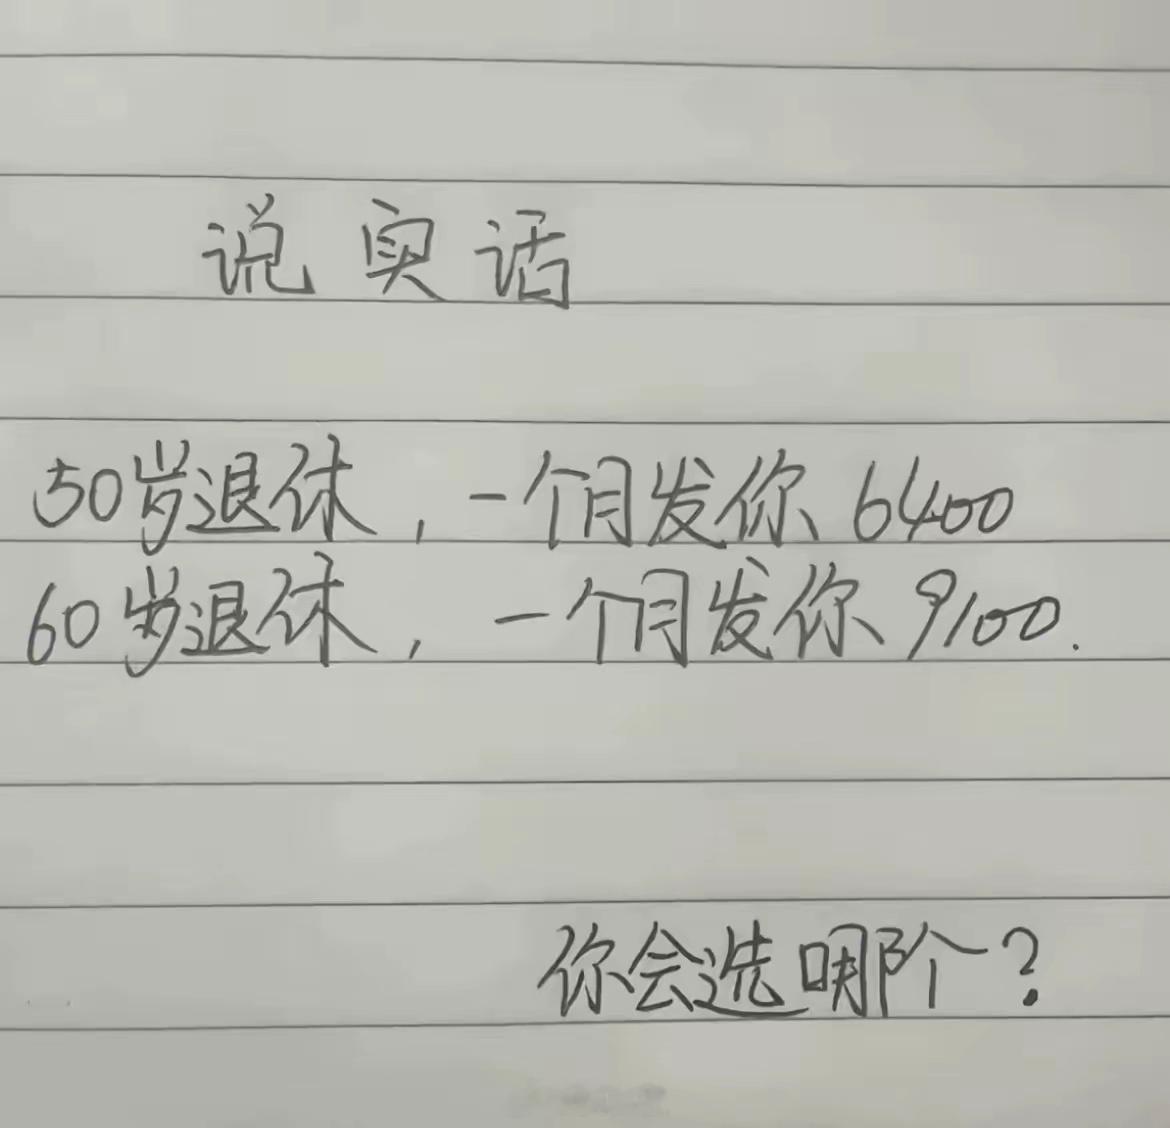 说实话
50岁退休，一个月发你6400
60岁退休，一个月发你9100.
你会选哪个？